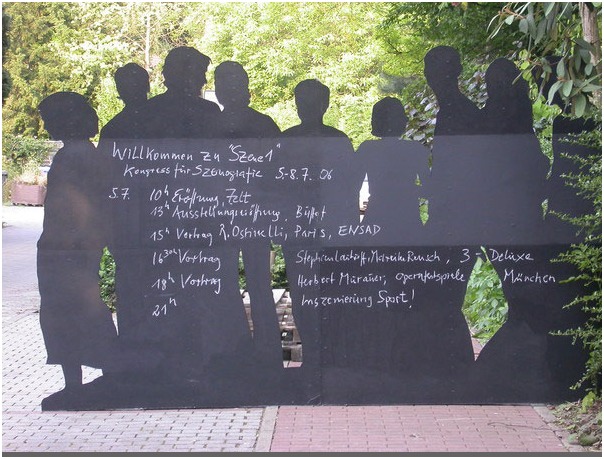 Willkommen zu "Szene1"
Kongress für Szenografie 5.-8.7.06
5.7. 10h Eröffnung, Zelt
13h Ausstellungseröffnung, Büffet
15h Vortrag R. Ostinelli, Paris, ENSAD
16 30h Vortrag Stephan Mareike Rensch, 3 Deluxe
18h Vortrag Herbert Murauer, München
21h Inszenierung Sport!